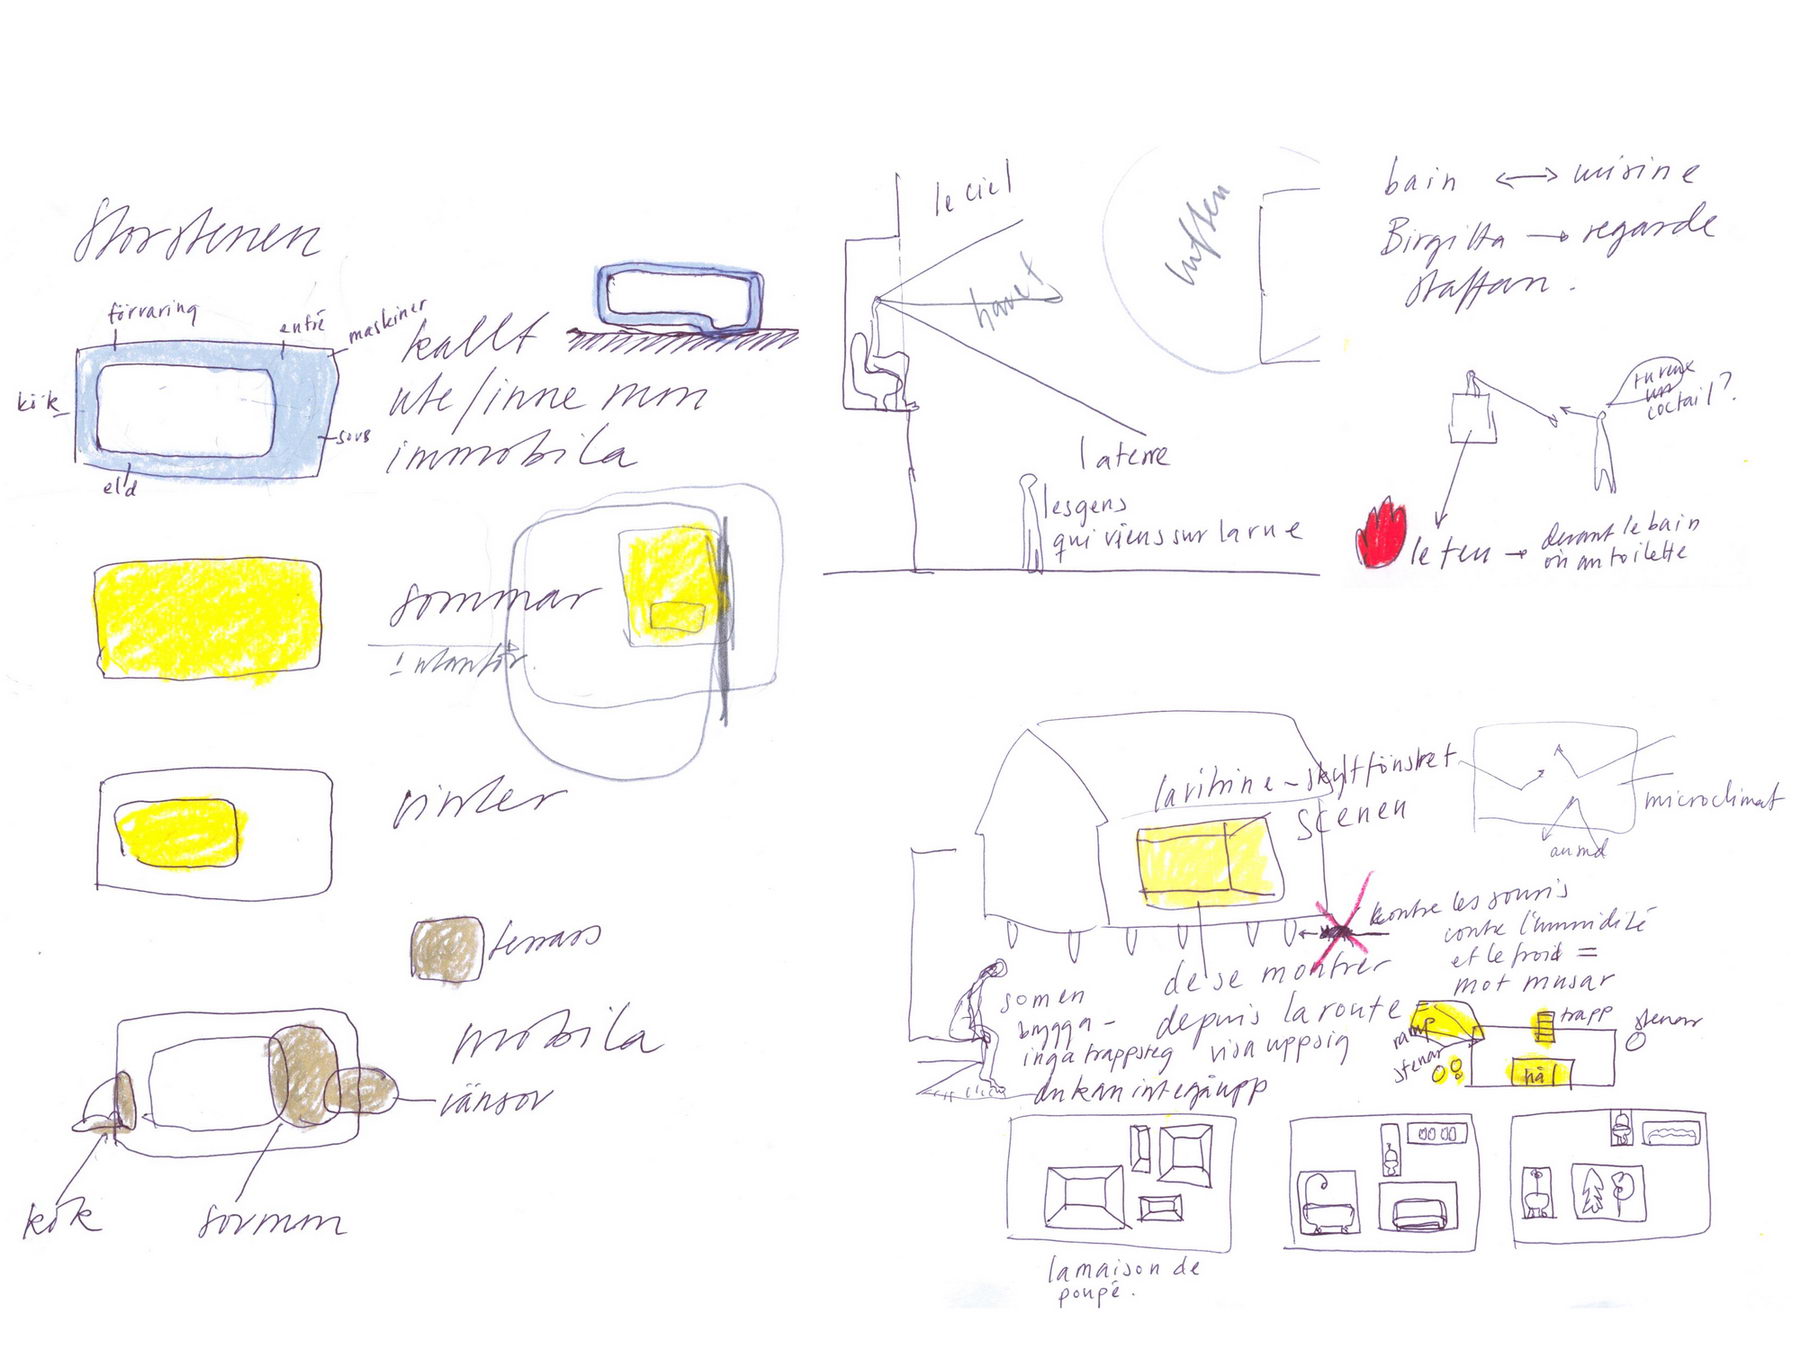 Storstenen
förvaring
entré
maskiner
kök
sovs
eld
kallt
ute/inne rum
immobila
sommar
utanför
vinter
terrass
mobila
vänsov
kök
sovrum
le ciel
havet
luften
la terre
les gens
qui viens sur la rue
bain ↔ cuisine
Birgitta → regarde
Staffan.
tu veux
un
coctail?
le feu → devant le bain
ou au toilette
la vitrine - skyltfönstret
scenen
microclimat
contre les souris
contre l'humidité
et le froid =
mot musar
de se montrer
depuis la route
visa upp sig
som en
brygga -
inga trappsteg
du kan inte gå upp
ramp
stenar
trapp
stenar
hål
la maison de
poupé.